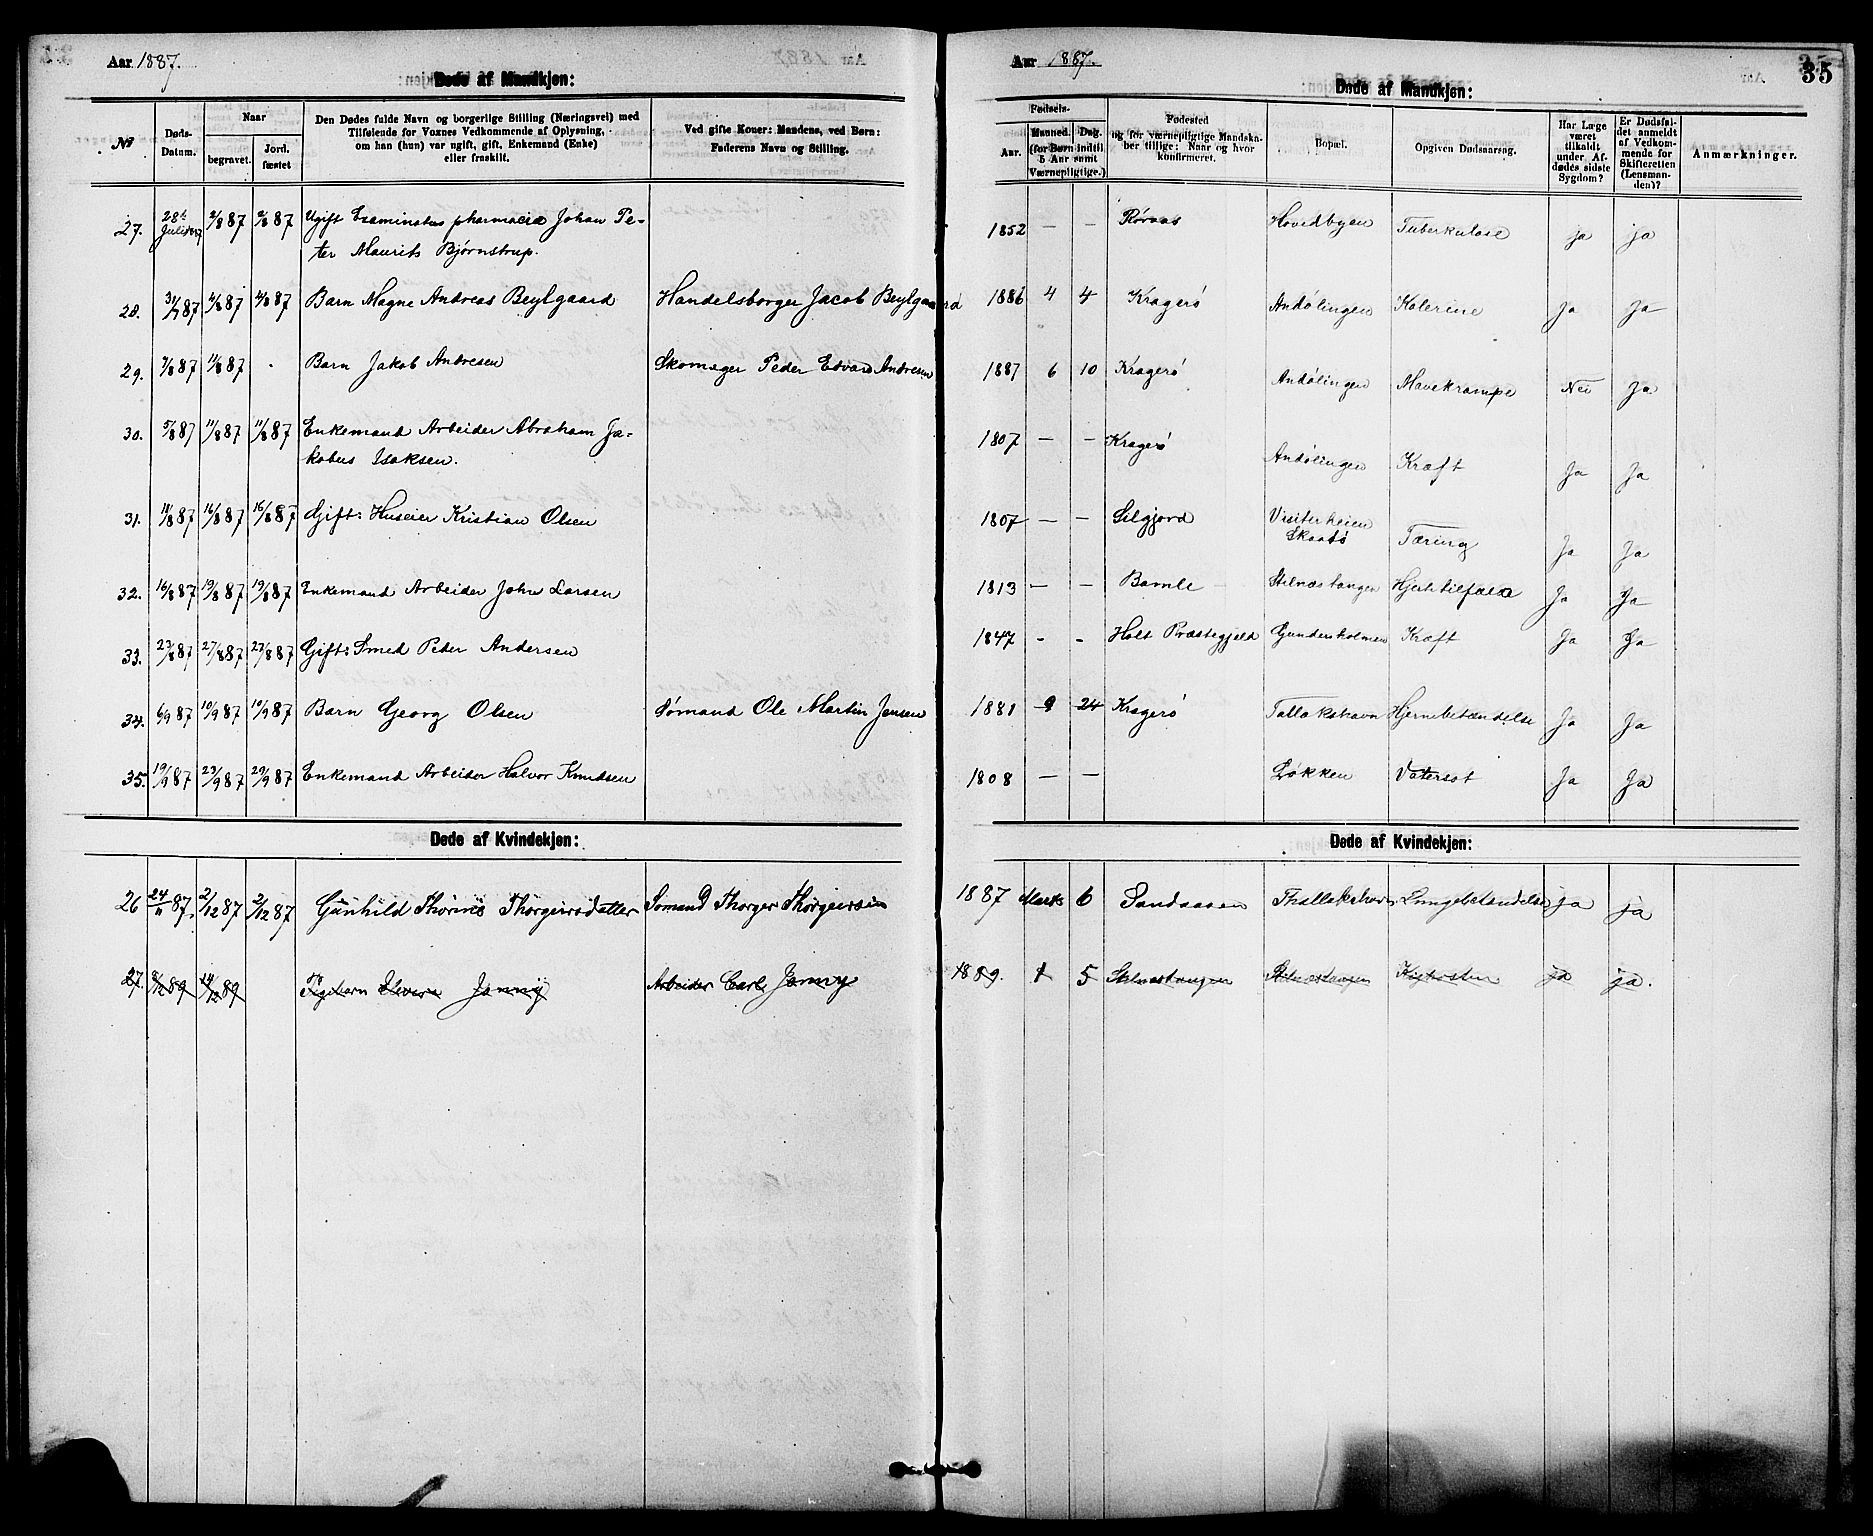 Aar 1887.
Døde af Mandkjøn:
No
Døds-Datum.
Naar
begravet.
Jord. fæstet
Den Dødes fulde Navn og borgerlige Stilling (Næringsvei) med
Tilføiende for Voxnes Vedkommende af Oplysning,
om han (hun) var ugift, gift, Enkemand (Enke)
eller fraskilt.
Ved gifte Koner: Mandens, ved Børn:
Faderens Navn og Stilling.
27. 28de Juli 1887 2/8 87 2/8 87 Ugift Examinatus pharmaciæ Johan Pe-
ter Maurits Bjørnstrup.
28. 31/7 87 4/8 87 4/8 87 Barn Magne Andreas Beylgaard Handelsborger Jacob Beylgaard
29. 7/8 87 11/8 87 - Barn Jakob Andresen Skomager Peder Edvard Andresen
30. 5/8 87 11/8 87 11/8 87 Enkemand Arbeider Abraham Ja-
kobus Isaksen.
31. 11/8 87 16/8 87 16/8 87 Gift: Huseier Kristian Olsen
32. 16/8 87 19/8 87 19/8 87 Enkemand Arbeider John Larsen
33. 23/8 87 27/8 87 27/8 87 Gift: Smed Peder Andersen
34. 6/9 87 10/9 87 10/9 87 Barn Georg Olsen Sømand Ole Martin Jensen
35. 19/9 87 23/9 87 29/9 87 Enkemand Arbeider Halvor Knudsen
Døde af Kvindekjøn:
26 24/11 87. 2/12 87 2/12 87 Gunhild Thorine Thorgeirsdatter Sømand Thorger Thorgeirsen
27. 8/12 89 14/12 89 Pigebarn Elvera Janny Arbeider Carl Janny
Aar 1887.
35
Døde af Mandkjøn:
Fødsels-
Aar.
Maaned. Dag.
(for Børn indtil
5 Aar samt
Værnepligtige.)
Fødested
og for værnepligtige Mandska-
ber tillige: Naar og hvor
konfirmeret.
Bopæl.
Opgiven Dødsaarsag.
Har Læge
været
tilkaldt
under Af-
dødes sidste
Sygdom?
Er Dødsfal-
det anmeldt
af Vedkom-
mende for
Skifteretten
(Lensman-
den)?
Anmærkninger.
1852 — - Røraas Hovedbyen Tuberkulose ja ja
1886 4 4 Kragerø Andølingen Kolerine Ja Ja
1887 6 10 Kragerø Andølingen Mavekrampe Nei Ja
1807 — — Kragerø Andølingen Kræft Ja Ja
1807 — — Silgjord Visiterheien
Skaatø Tæring Ja Ja
1813 — - Bamle Stilnæstangen Hjertetilfælde Ja Ja
1847 - - Holt Præstegjeld Gunderholmen Kræft Ja Ja
1881 9 24 Kragerø Tallakshavn Hjernebetændelse Ja Ja
1808 — — Løkken Vatersot Ja Ja
Døde af Kvindekjøn:
1887 Marts 6 Sandaasen Thallakshavn Lungebetændelse ja ja
1889. 1 5 Stilnæstangen Stilnæstangen ja ja.